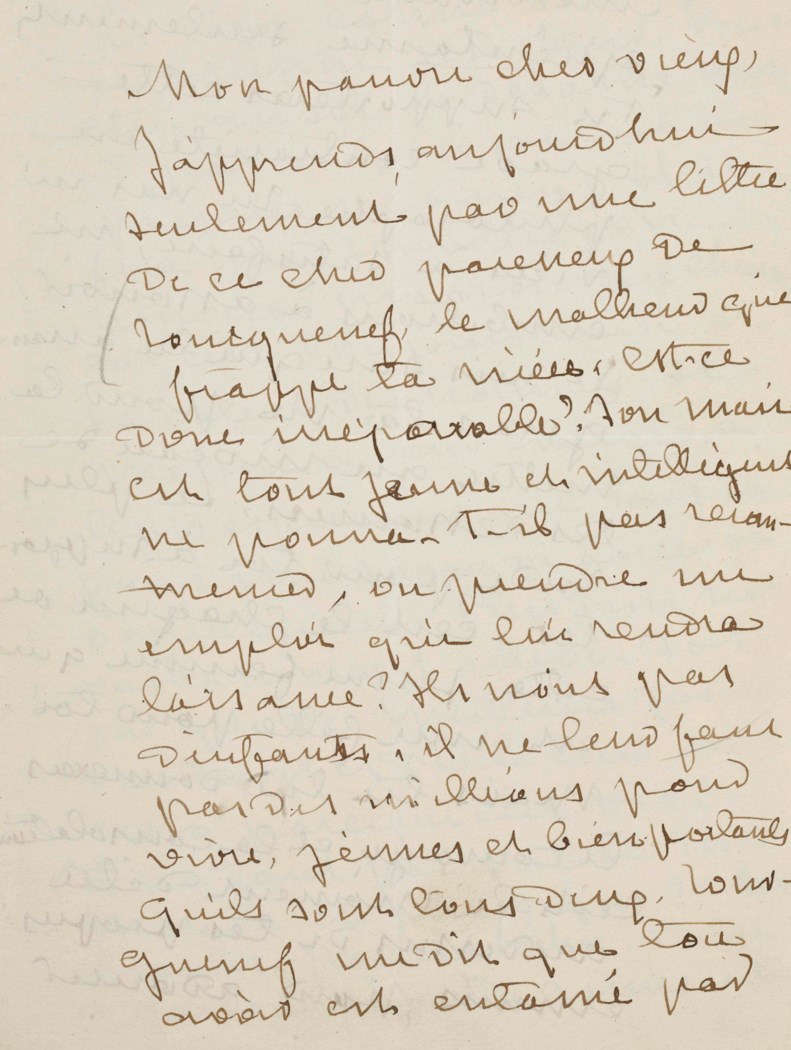 Mon pauvre cher vieux,
J'apprends aujourd'hui
seulement par une lettre
de ce cher paresseux de
Tourguenef, le malheur qui
frappe ta nièce. est-ce
donc irréparable? Son mari
est tout jeune et intelligent
ne pourra-t-il pas recom-
mencer, ou prendre un
emploi qui lui rendra
l'aisance? Ils n'ont pas
d'enfants, il ne leur faut
pas des millions pour
vivre, jeunes et bien portants
qu'ils sont tous deux. Tour-
guenef me dit que ton
avoir est entamé par